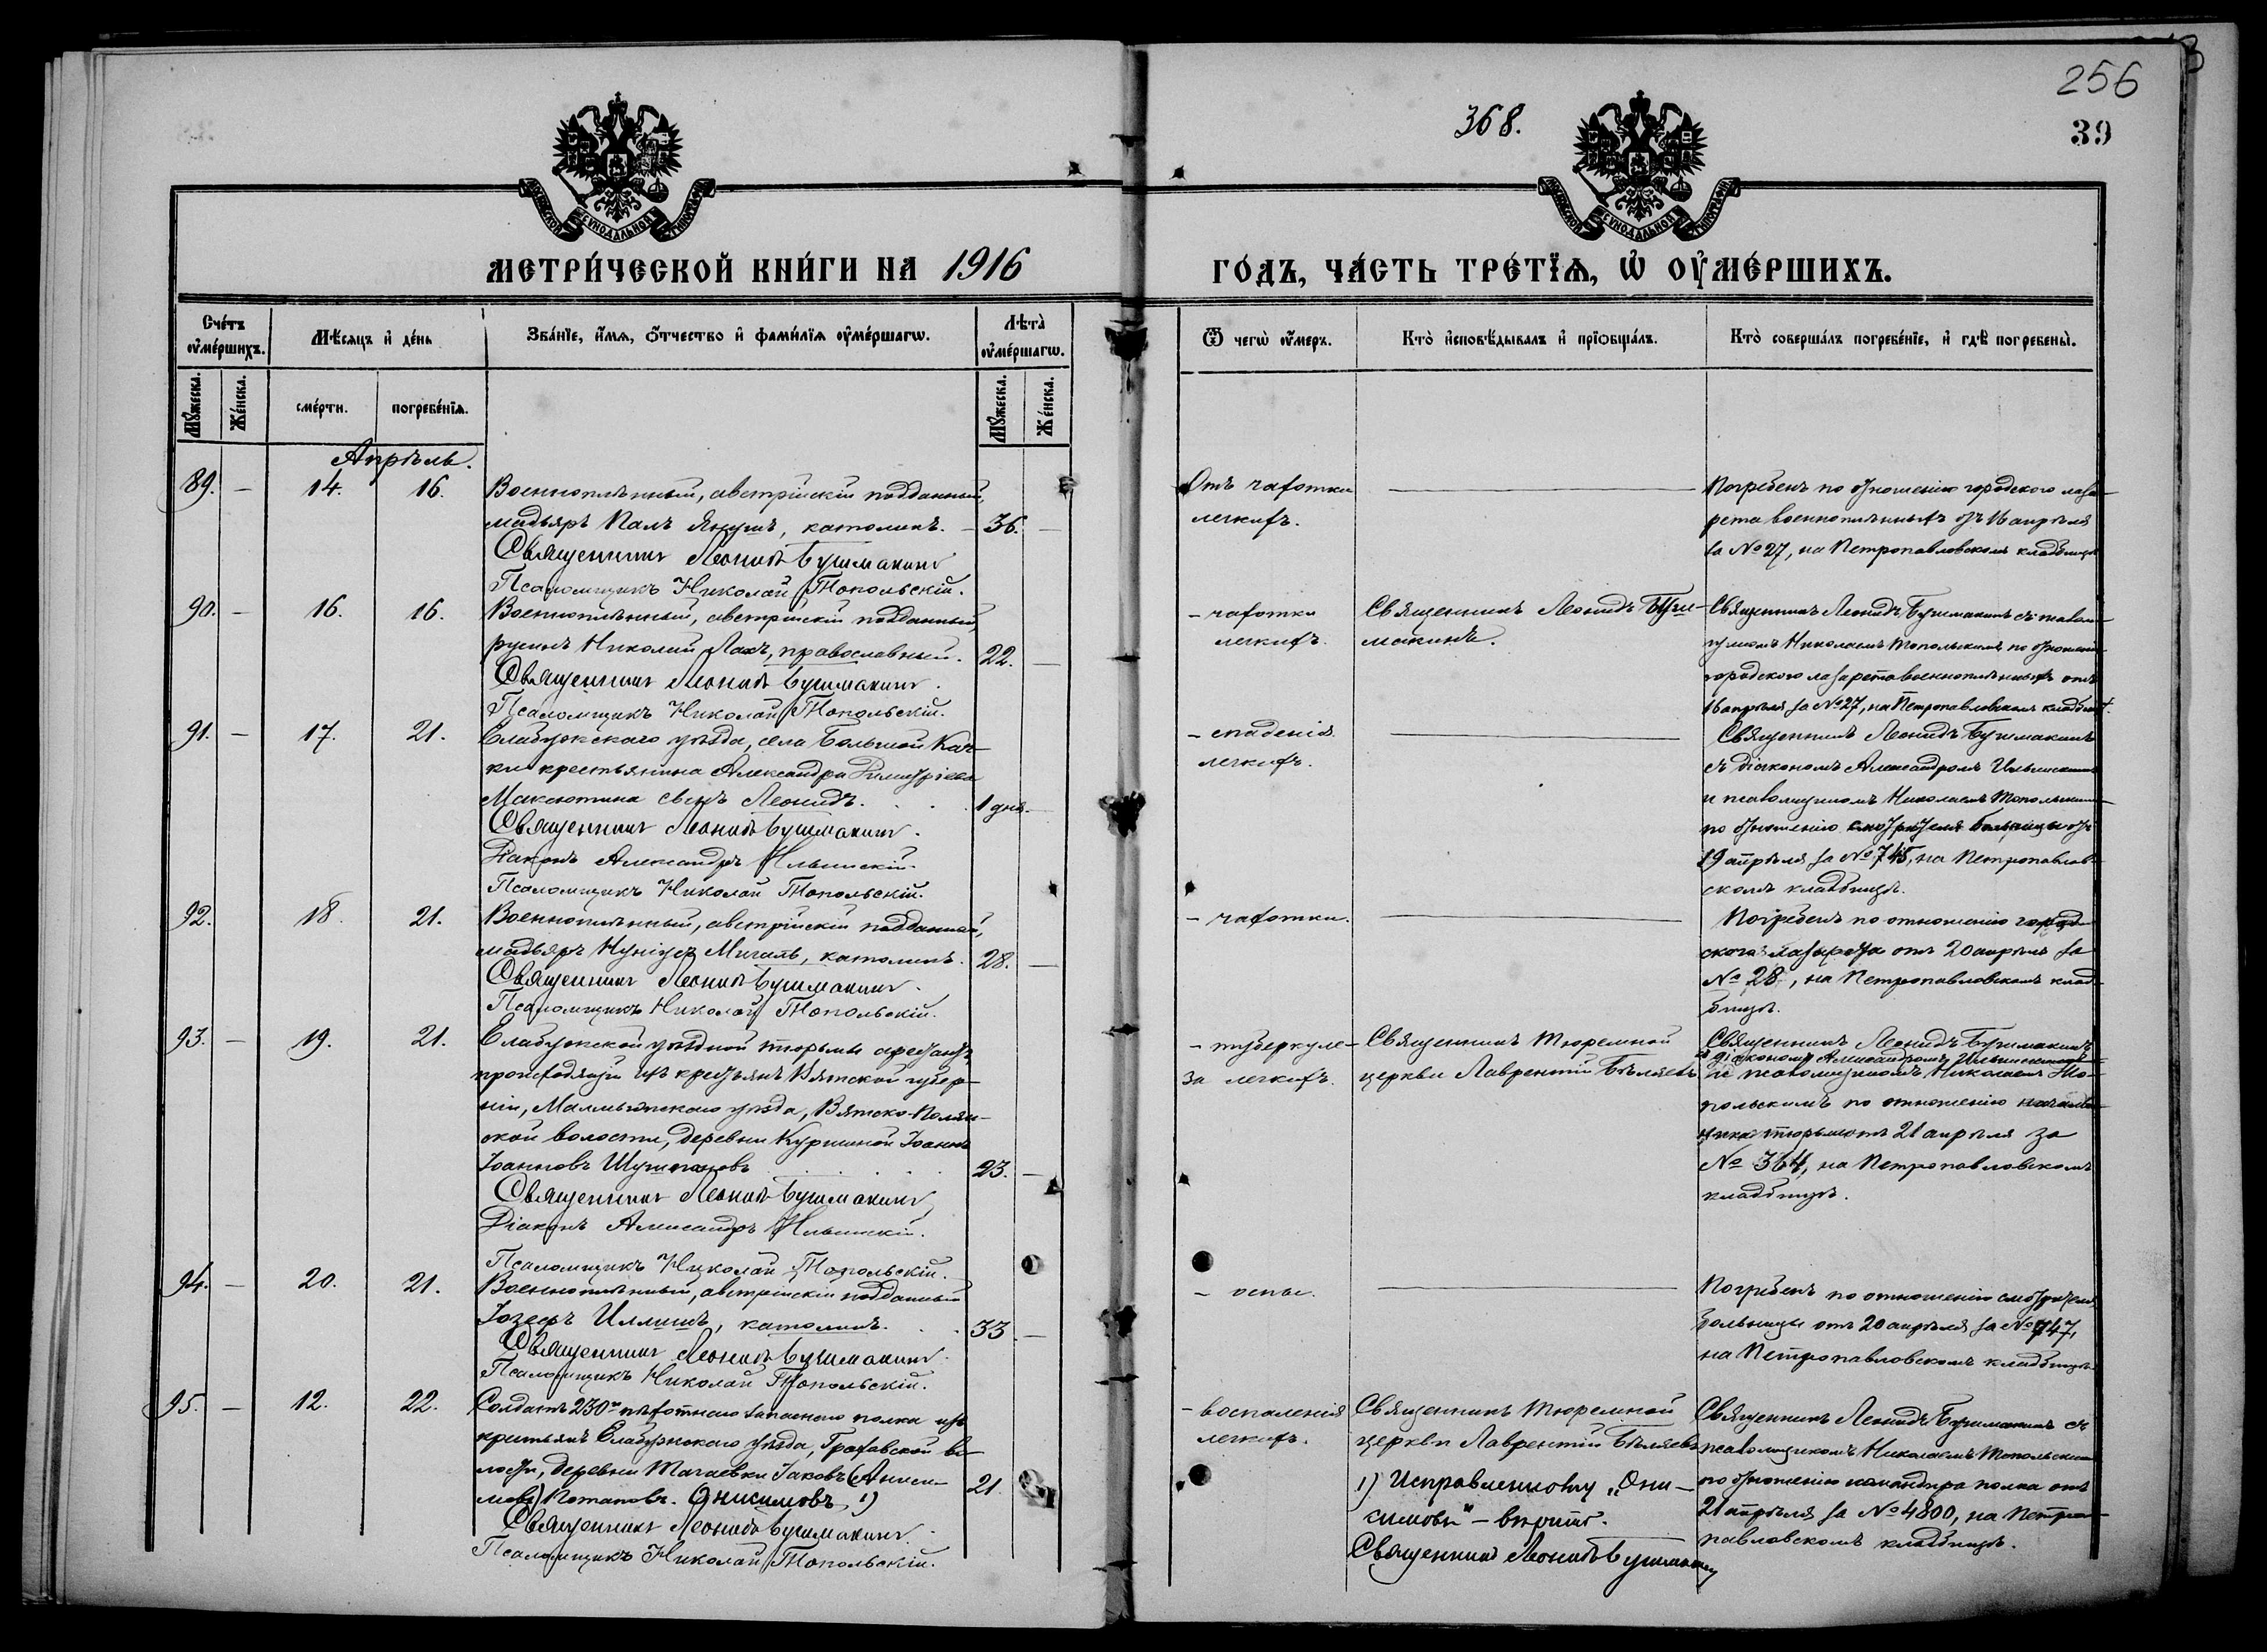 256
368.
39
МЕТРИ́ЧЕСКОЙ КНИ́ГИ НА 1916
ГО́ДЪ, ЧА́СТЬ ТРЕ́ТЇѦ, Ѡ҆ ОУ҆МЕ́РШИХЪ.
Сче́тъ оу҆ме́ршихъ.
Мѣ́сяцъ и҆ де́нь
Зва́нїе, и҆́мя, ѻ҆́тчество и҆ фами́лїя оу҆ме́ршагѡ.
Лѣ́та оу҆ме́ршагѡ.
Ѿ чегѡ̀ оу҆́меръ.
Кто̀ и҆сповѣ́дывалъ и҆ прїѡбща́лъ.
Кто̀ соверша́лъ погребе́нїе, и҆ гдѣ̀ погребены̀.
Мꙋ́жеска.
Же́нска.
сме́рти.
погребе́нїя.
Мꙋ́жеска.
Же́нска.
Апрѣль.
89. — 14. 16. Военноплѣнный, австрійскій подданный,
мадьяръ Палъ Янушъ, католикъ. — 36. —
Священникъ Леонидъ Бушмакинъ
Псаломщикъ Николай Топольскій.
Отъ чахотки
легкихъ.
Погребенъ по отношенію городского лаза-
рета военноплѣнныхъ отъ 16 апрѣля
за № 27, на Петропавловскомъ кладбищѣ
90. — 16. 16. Военноплѣнный, австрійскій подданный,
русинъ Николай Лахъ, православный. 22. —
Священникъ Леонидъ Бушмакинъ.
Псаломщикъ Николай Топольскій.
— чахотки
легкихъ.
Священникъ Леонидъ Буш-
макинъ.
Священникъ Леонидъ Бушмакинъ съ псалом-
щикомъ Николаемъ Топольскимъ по отношенію
городского лазарета военноплѣнныхъ отъ
16 апрѣля за № 27, на Петропавловскомъ кладбищѣ.
91. — 17. 21. Елабужскаго уѣзда, села Большой Кач-
ки крестьянина Александра Димитріева
Максютина сынъ Леонидъ. . . . 1 дня. —
Священникъ Леонидъ Бушмакинъ.
Діаконъ Александръ Ильинскій.
Псаломщикъ Николай Топольскій.
— спаденія
легкихъ.
Священникъ Леонидъ Бушмакинъ
съ діакономъ Александромъ Ильинскимъ
и псаломщикомъ Николаемъ Топольскимъ
по отношенію смотрителя больницы отъ
19 апрѣля за № 745, на Петропавлов-
скомъ кладбищѣ.
92. 18. 21. Военноплѣнный, австрійскій подданный,
мадьяръ Мигаль, католикъ. 28. —
Священникъ Леонидъ Бушмакинъ.
Псаломщикъ Николай Топольскій.
— чахотки.
Погребенъ по отношенію город-
ского лазарета отъ 20 апрѣля за
№ 28, на Петропавловскомъ клад-
бищѣ.
93. — 19. 21. Елабужской уѣздной тюрьмы арестантъ,
происходящій изъ крестьянъ Вятской губер-
ніи, Малмыжскаго уѣзда, Вятско-Полян-
ской волости, деревни Куршиной Іоаннъ
Іоанновъ . . . . 23. —
Священникъ Леонидъ Бушмакинъ
Діаконъ Александръ Ильинскій.
Псаломщикъ Николай Топольскій.
— туберкуле-
за легкихъ.
Священникъ тюремной
церкви Лаврентій Бѣляевъ
Священникъ Леонидъ Бушмакинъ
съ діакономъ Александромъ Ильинскимъ
и псаломщикомъ Николаемъ То-
польскимъ по отношенію началь-
ника тюрьмы отъ 21 апрѣля за
№ 364, на Петропавловскомъ
кладбищѣ.
94. — 20. 21. Военноплѣнный, австрійскій подданный
Іозефъ Иллишъ, католикъ. . . 33. —
Священникъ Леонидъ Бушмакинъ.
Псаломщикъ Николай Топольскій.
— оспы.
Погребенъ по отношенію смотрителя
больницы отъ 20 апрѣля за № 747,
на Петропавловскомъ кладбищѣ.
95. — 12. 22. Солдатъ 230го пѣхотнаго запаснаго полка изъ
крестьянъ Елабужскаго уѣзда, Граховской во-
лости, деревни Магаевки Іаковъ (Аниси-
мовъ) Потаповъ. Онисимовъ 1) 21.
Священникъ Леонидъ Бушмакинъ.
Псаломщикъ Николай Топольскій.
— воспаленія
легкихъ.
Священникъ тюремной
церкви Лаврентій Бѣляевъ
1) Исправленному „Они-
симовъ" — вѣрить.
Священникъ Леонидъ Бушмакинъ
Священникъ Леонидъ Бушмакинъ съ
псаломщикомъ Николаемъ Топольскимъ
по отношенію командира полка отъ
21 апрѣля за № 4800, на Петро-
павловскомъ кладбищѣ.